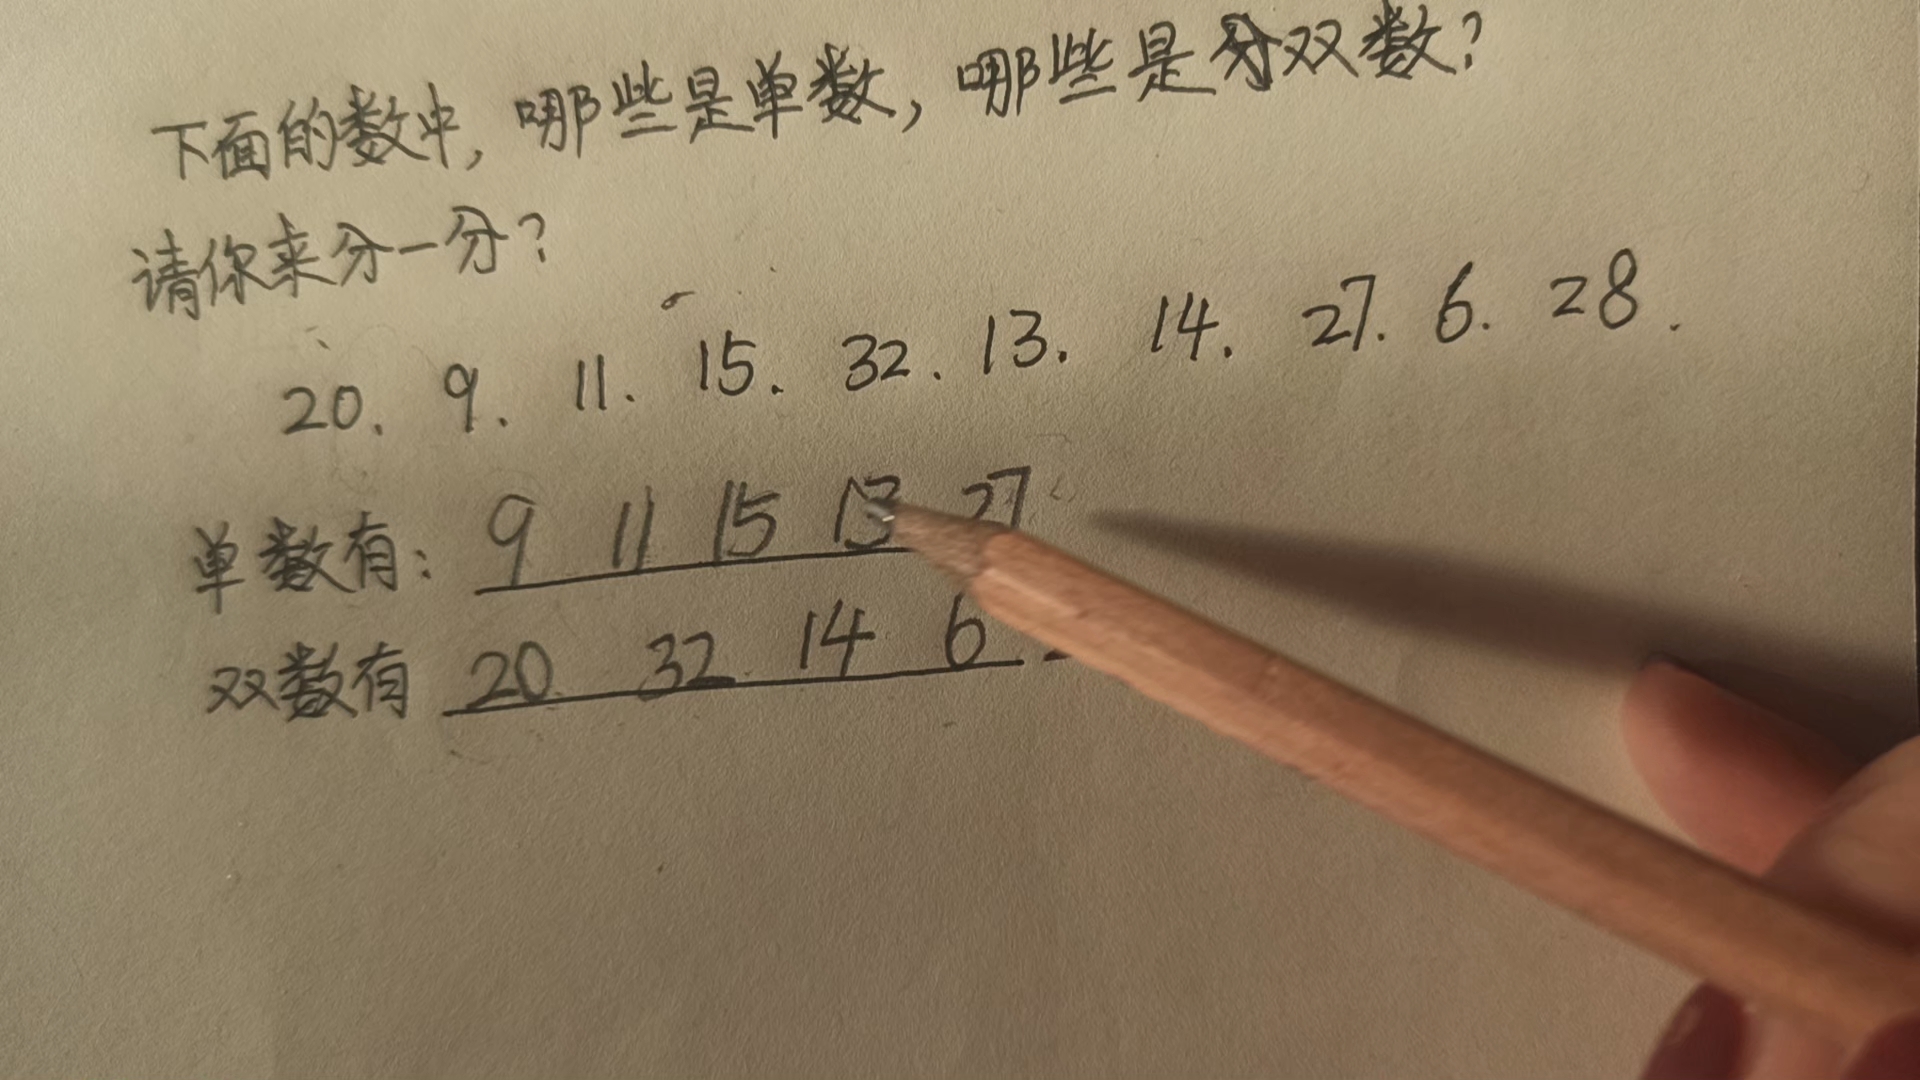 下面的数中，哪些是单数，哪些是双数？
请你来分一分？
20. 9. 11. 15. 32. 13. 14. 27. 6. 28.
单数有：9 11 15 13 27
双数有 20 32 14 6